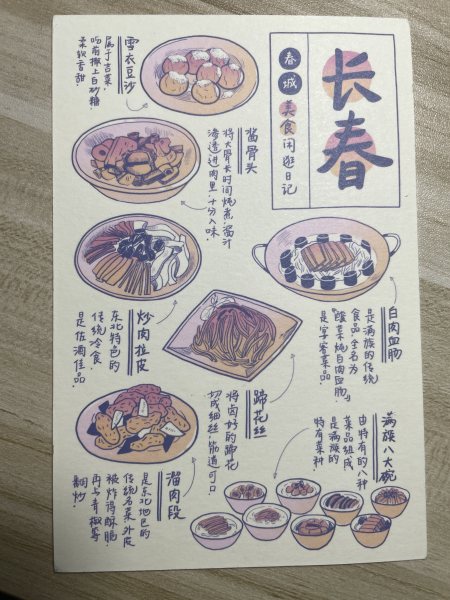 长春
春城美食闲逛日记
雪衣豆沙
属于吉菜,
吃前撒上白砂糖,
柔软香甜.
酱骨头
将大骨长时间炖煮,酱汁
渗透进肉里,十分入味.
炒肉拉皮
东北特色的
传统冷食,
是佐酒佳品.
白肉血肠
是满族的传统
食品,全名为
“酸菜炖白肉血肠”,
是宴客菜品.
蹄花丝
将卤好的蹄花
切成细丝,筋道可口
满族八大碗
由特有的八种
菜品组成
是满族的
特有菜种
溜肉段
是东北地区的
传统名菜,外皮
被炸得酥脆,
再与青椒等
翻炒.